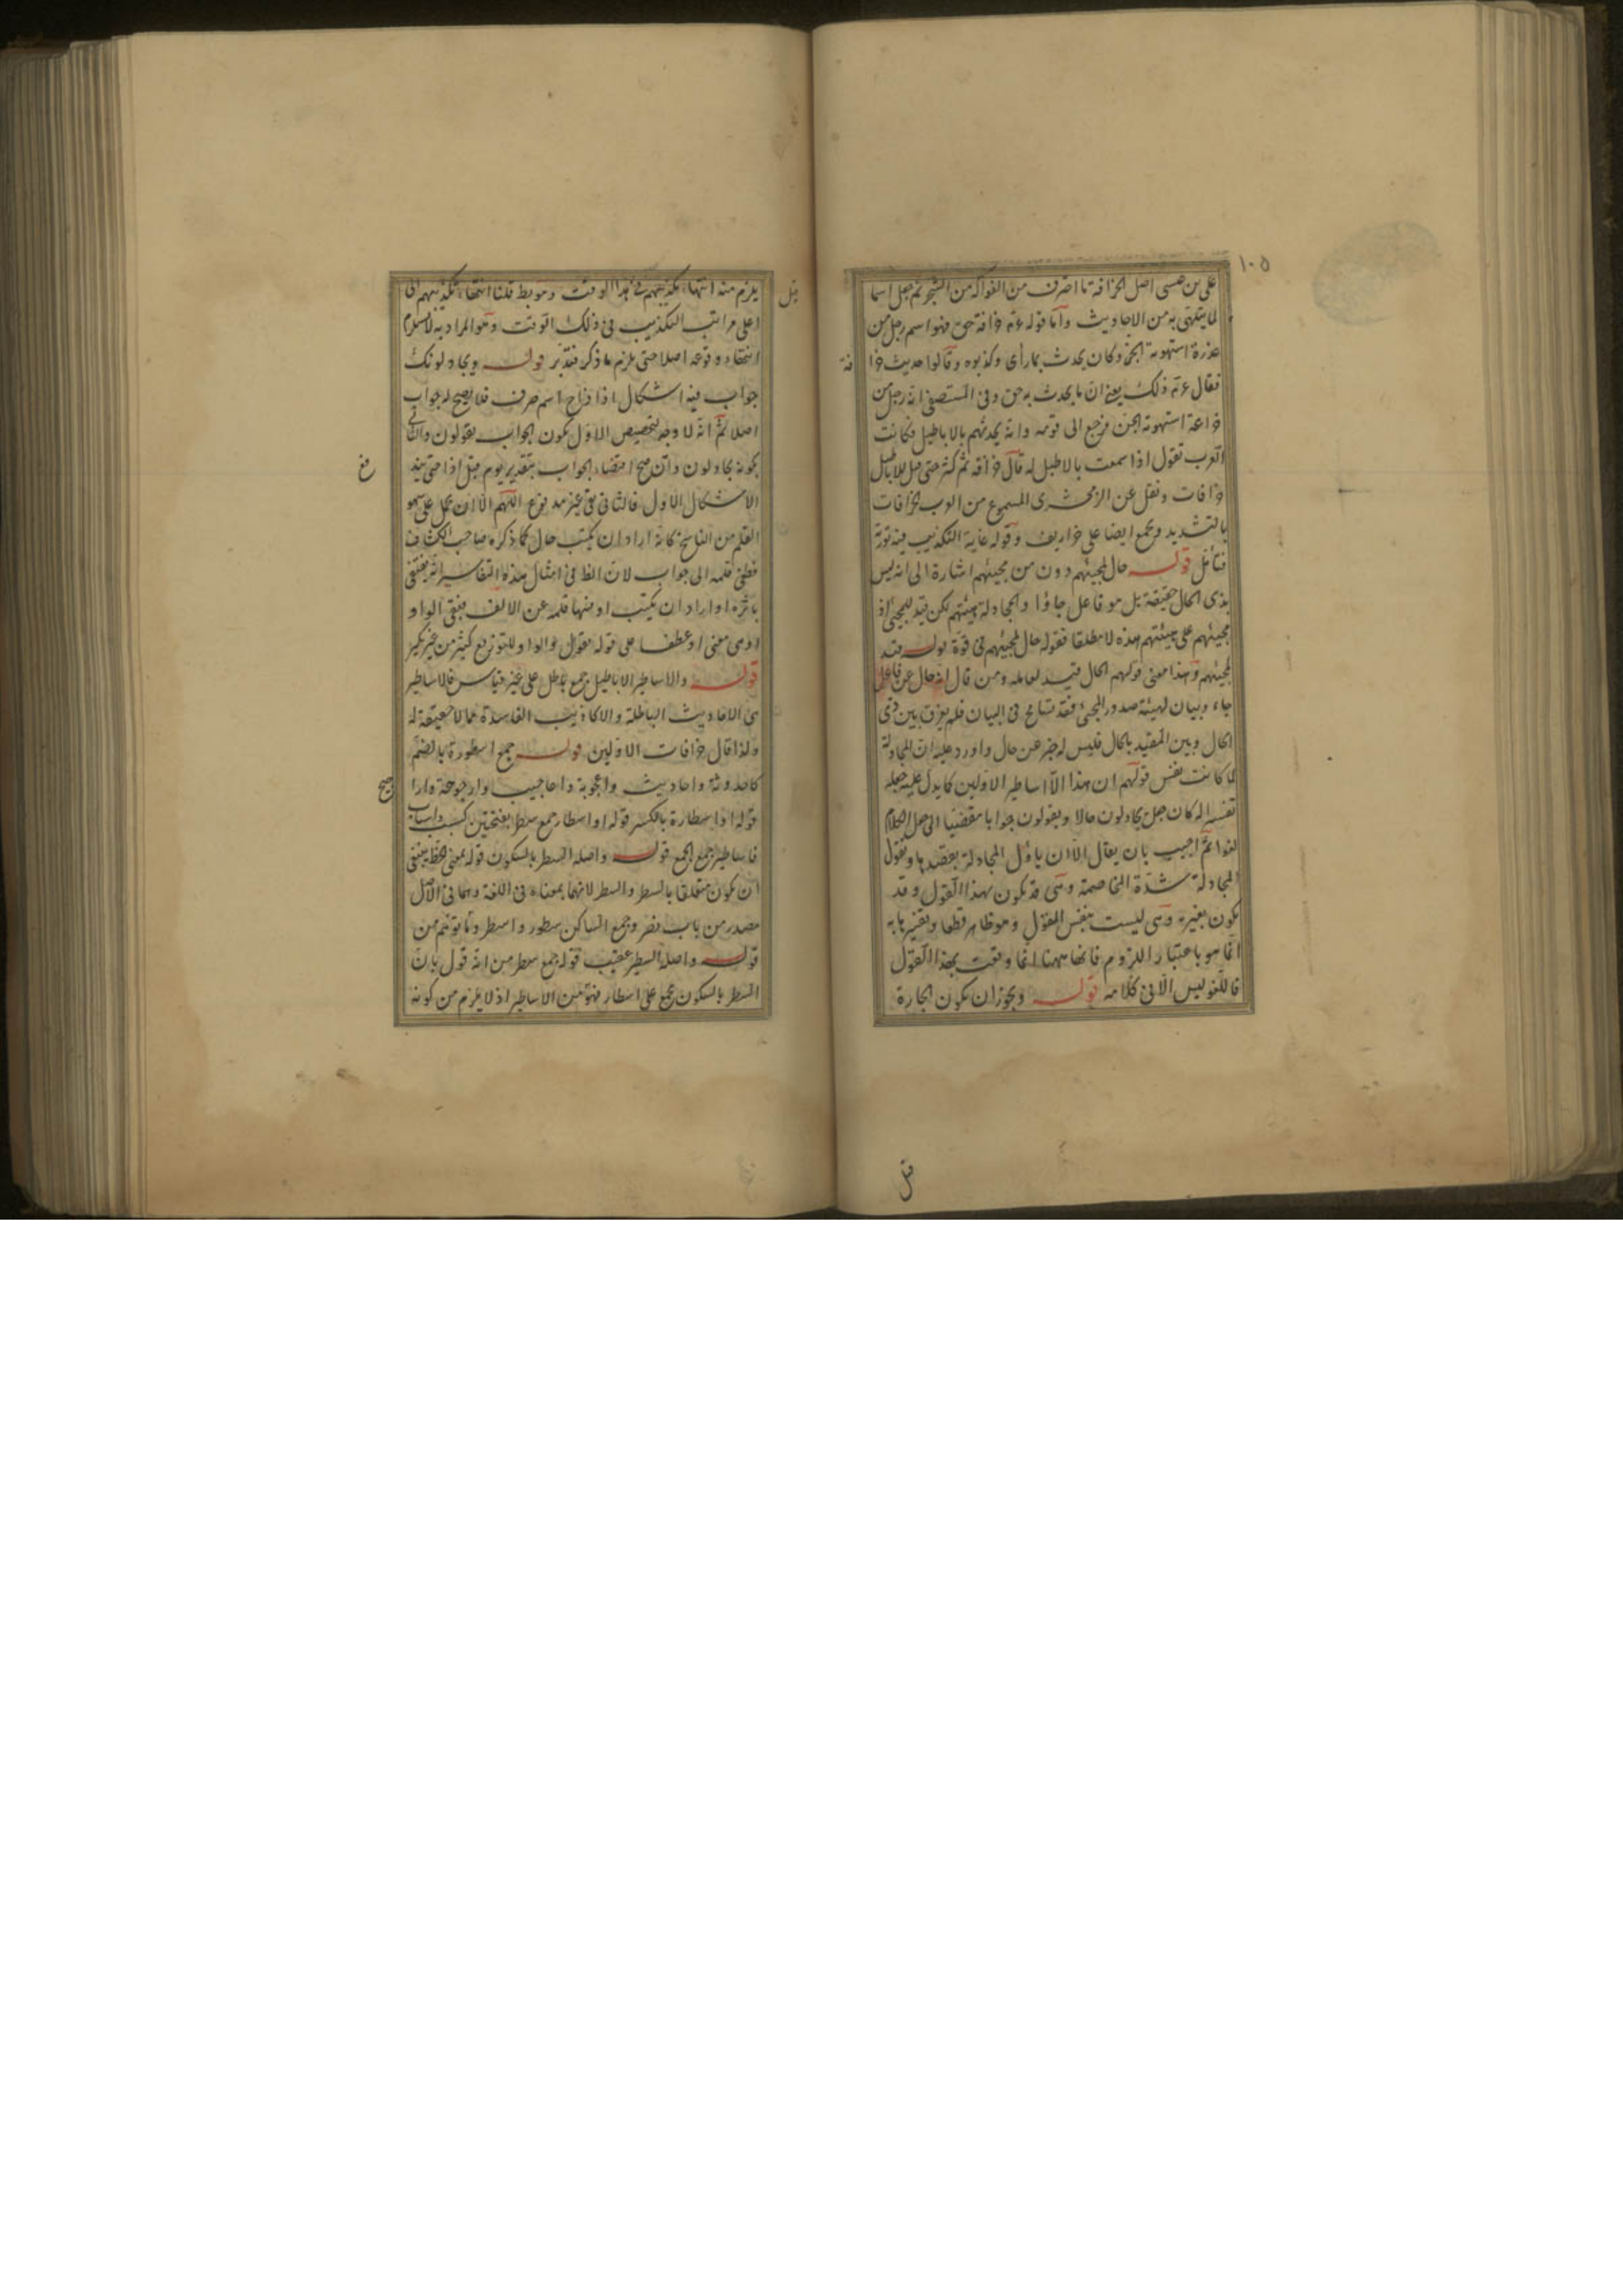 ١٠٥
على بن عيسى اصل الخرافة ما اخترف من الفواكه من الشجر ثم جعل اسما
لما يتلهى به من الاحاديث وأما قوله عم خرافة حق فهو اسم رجل من
عذرة استهوته الجن وكان يحدث بما رأى وكذبوه وقالوا حديث خرا
فة
فقال عم ذلك يعنى ان ما يحدث به حق وفى المستصفى انه رجل من
خزاعة استهوته الجن فرجع الى قومه وانه يحدثهم بالاباطيل وكانت
العرب تقول اذا سمعت بالاطيل له قال خرافة ثم كثر حتى قيل للاباطيل
خرافات ونقل عن الزمخشرى المسموع من العرب الخرافات
بالتشديد ويجمع ايضا على خراريف وقوله غاية التكذيب فيه
فتأمل قوله حال لمجيئهم دون من مجيئهم اشارة الى انه ليس
بذى الحال حقيقة بل هو فاعل جاؤا والمجادلة هيئتهم لكن قيد للمجيئ اذ
مجيئهم على هيئتهم هذه لا مطلقا فقوله حال لمجيئهم فى قوة قوله قيد
لمجيئهم وهذا معنى قولهم الحال قيد لعامله ومن قال انه حال عن فاعل
جاء وبيان لهيئة صدور المجئ فقد تسامح فى البيان فلم يفرق بين ذى
الحال وبين المقيد بالحال فليس له خبر عن حال واورد عليه ان المجادلة
لما كانت نفس قولهم ان هذا الا اساطير الاولين كما يدل عليه جعله
تفسيرا له كان جعل يجادلون حالا ويقولون جوابا مفضيا الى جعل الكلام
لغوا ثم اجيب بان يقال الا ان ياول المجادلة بقصدها ونقول
المجادلة شدة المخاصمة وهى قد تكون بهذا القول وقد
تكون بغيره وهى ليست بنفس القول وهو ظاهر قطعا وتفسيرها به
انما هو باعتبار اللزوم فانها ههنا انما وقعت بهذا القول
فاللغو ليس الا فى كلامه قوله ويجوز ان تكون الجارة
يلزم منه انتهاء تكذيبهم فى هذا الوقت وهو بط قلنا انتهاء تكذيبهم الى
اعلى مراتب التكذيب فى ذلك الوقت وهو المراد به لا يستلزم
انتهاء وقوعه اصلا حتى يلزم ما ذكر فتدبر قوله ويجادلونك
جواب فيه اشكال اذا خراج اسم صرف فلا يصح له جواب
اصلا ثم انه لا وجه لتخصيص الاول بكون الجواب يقولون والثانى
بكونه يجادلون وان صح اقتضاء الجواب بتقدير يوم قبل اذا حتى يند
فع
الاشكال الاول فالثانى بقى غير مدفوع اللهم الا ان يحمل على سهو
القلم من الناسخ كانه اراد ان يكتب حال كما ذكره صاحب الكشاف
فطغى قلمه الى جواب لان الظ فى امثال هذه التفاسير انه يقتفى
باثره او اراد ان يكتب او فنها قلمه عن الالف فبقى الواو
او هى معنى او عطف على قوله يقول والواو للتوزيع كثير من غير نكير
قوله والاساطير الاباطيل جمع باطل على غير قياس فالاساطير
هى الاحاديث الباطلة والاكاذيب الفاسدة مما لا حقيقة له
ولذا قال خرافات الاولين قوله جمع اسطورة بالضم
كاحدوثة واحاديث واعجوبة واعاجيب وارجوحة وارا
جيح
قوله او اسطارة بالكسر قوله او اسطار جمع سطر بفتحتين كسبب واسباب
فاساطير جمع الجمع قوله واصله السطر بالسكون قوله بمعنى الخط ينبغى
ان يكون متعلقا بالسطر والسطر لانهما بمعناه فى اللغة وهما فى الاصل
مصدر من باب نصر وجمع الساكن سطور واسطر وما توهم من
قوله واصله السطر عقيب قوله جمع سطر من انه قول بان
السطر بالسكون يجمع على اسطار فهو من الاساطير اذ لا يلزم من كونه